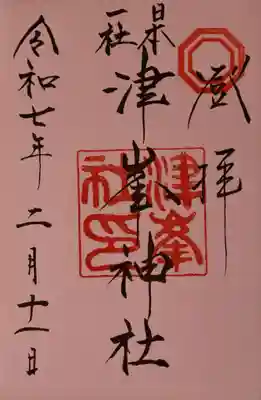 拝
日本
一社
津峯神社
津峯
社印
令和七年 二月十一日